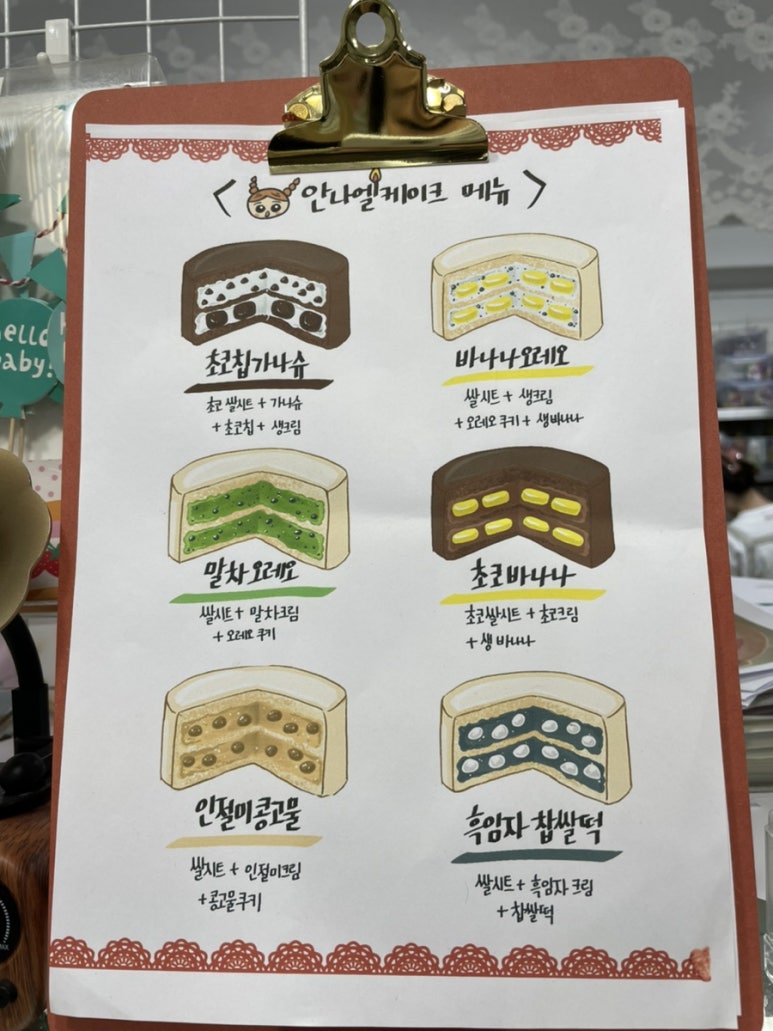 안나엘케이크 메뉴
초코칩가나슈
초코 쌀시트 + 가나슈
+ 초코칩 + 생크림
바나나오레오
쌀시트 + 생크림
+ 오레오 쿠키 + 생바나나
말차오레오
쌀시트 + 말차크림
+ 오레오 쿠키
초코바나나
초코쌀시트 + 초코크림
+ 생 바나나
인절미콩고물
쌀시트 + 인절미크림
+ 콩고물쿠키
흑임자 찹쌀떡
쌀시트 + 흑임자 크림
+ 찹쌀떡
hello
baby!